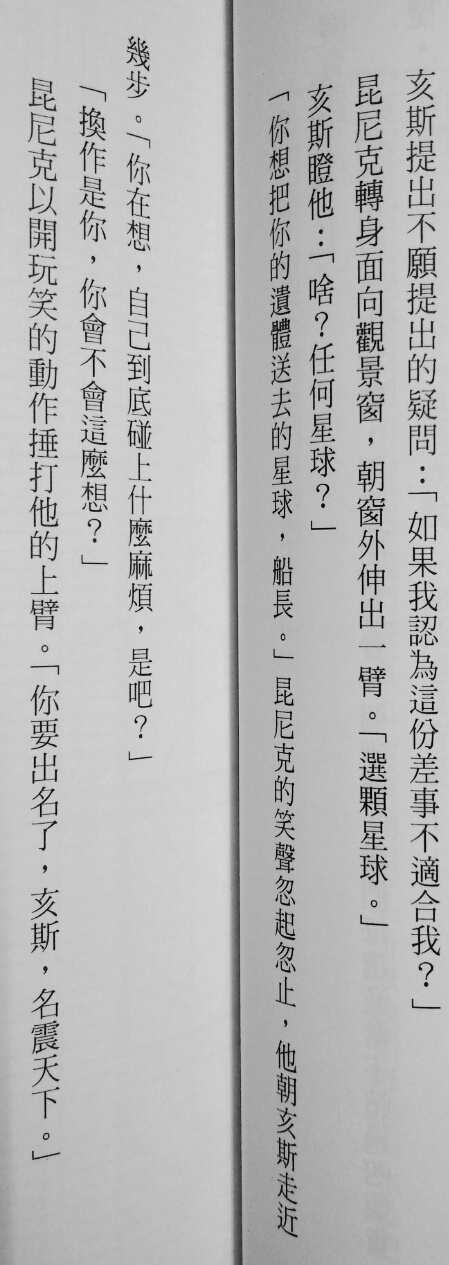 亥斯提出不願提出的疑問：「如果我認為這份差事不適合我？」
昆尼克轉身面向觀景窗，朝窗外伸出一臂。「選顆星球。」
亥斯瞪他：「啥？任何星球？」
「你想把你的遺體送去的星球，船長。」昆尼克的笑聲忽起忽止，他朝亥斯走近
幾步。「你在想，自己到底碰上什麼麻煩，是吧？」
「換作是你，你會不會這麼想？」
昆尼克以開玩笑的動作捶打他的上臂。「你要出名了，亥斯，名震天下。」